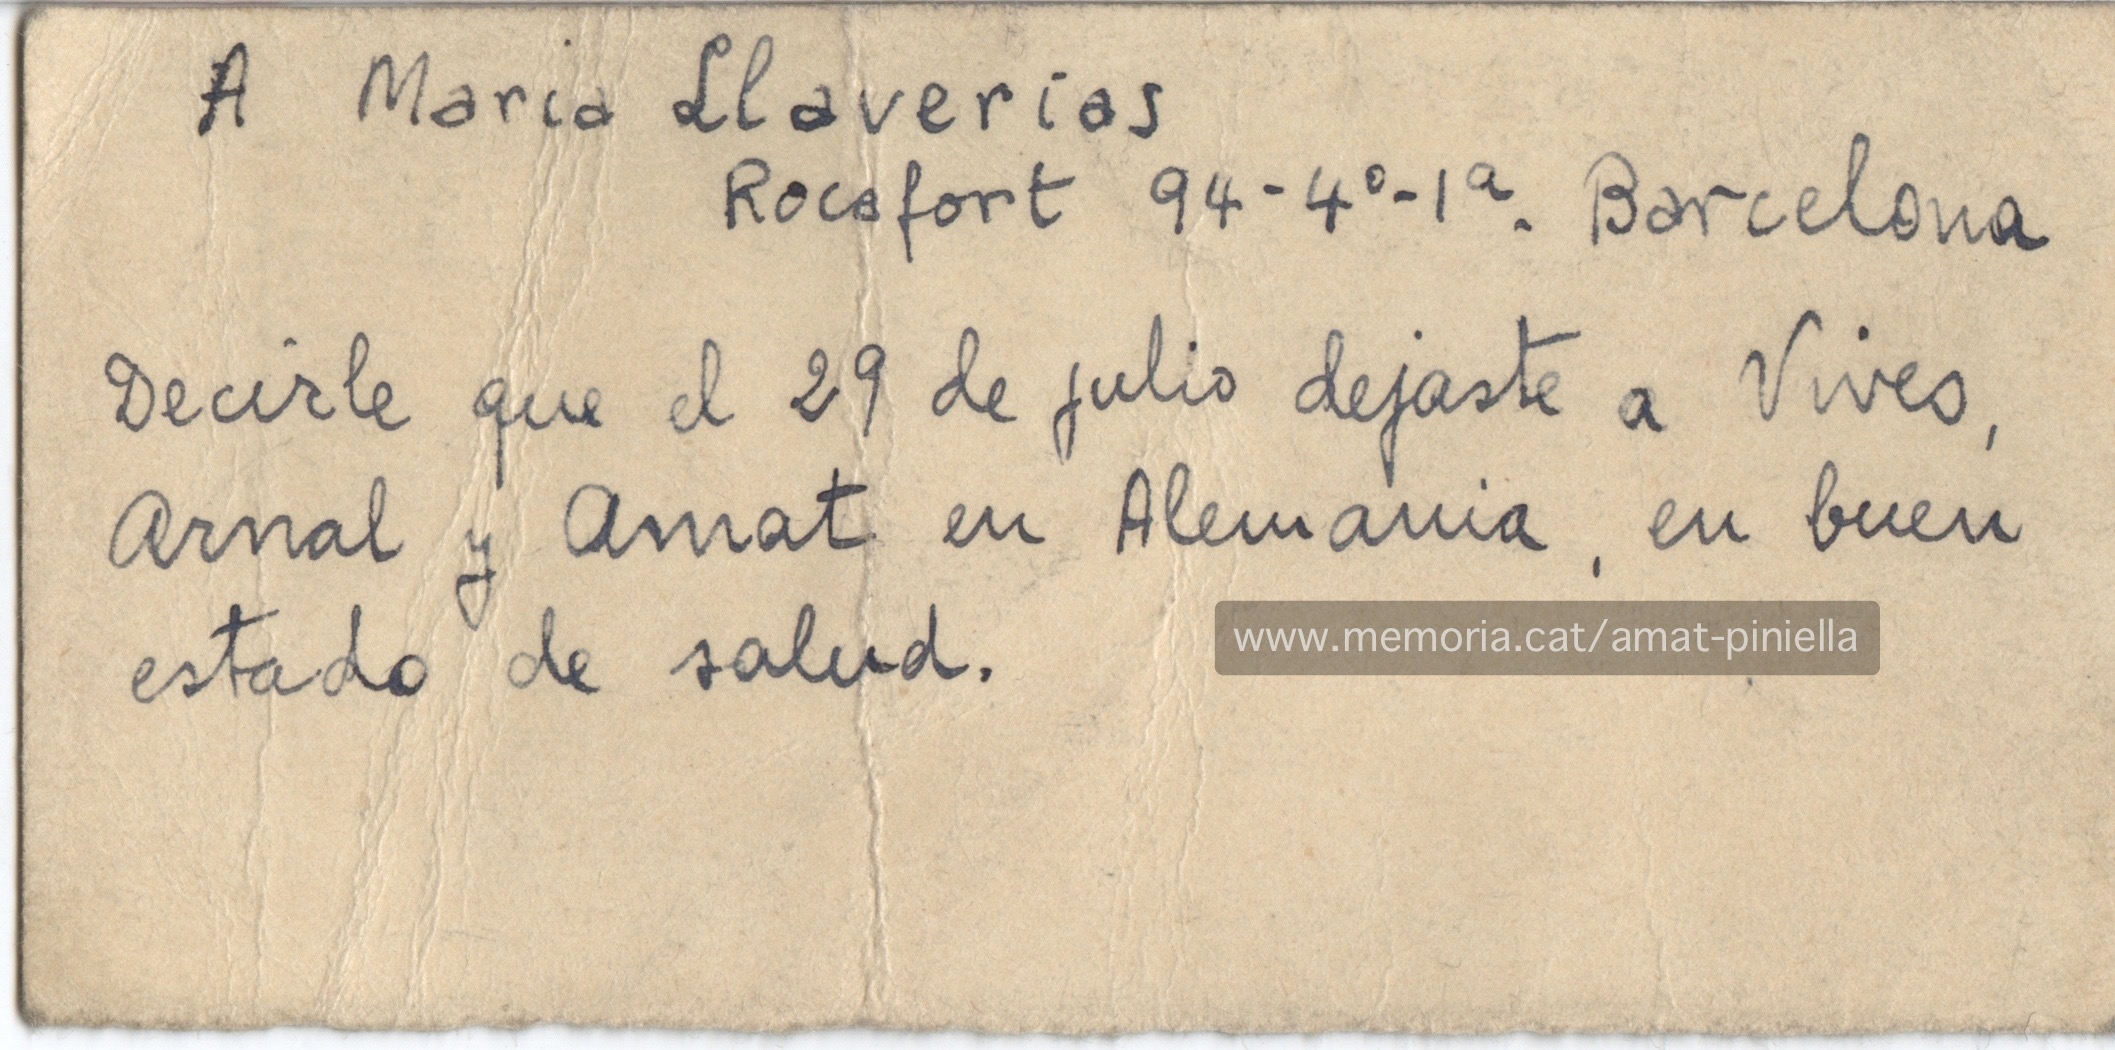 A Maria Llaverias
Rocafort 94-4º-1ª. Barcelona
Decirle que el 29 de julio dejaste a Vives,
Arnal y Amat en Alemania, en buen
estado de salud.
www.memoria.cat/amat-piniella